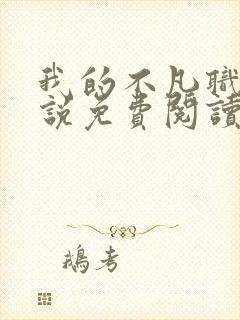 我的不凡職
說免費閱讀
鵝考